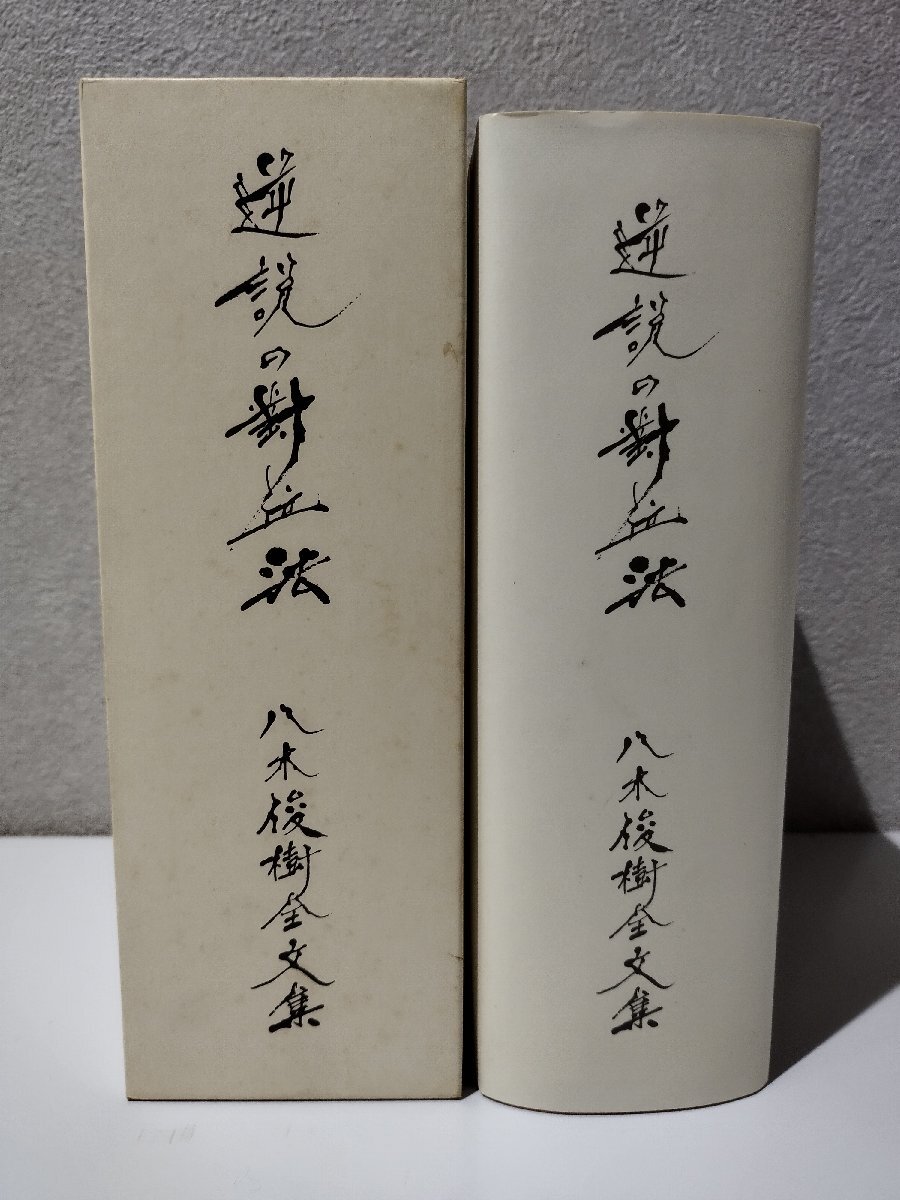 逆説の對位法
八木俊樹全文集
逆説の對位法
八木俊樹全文集